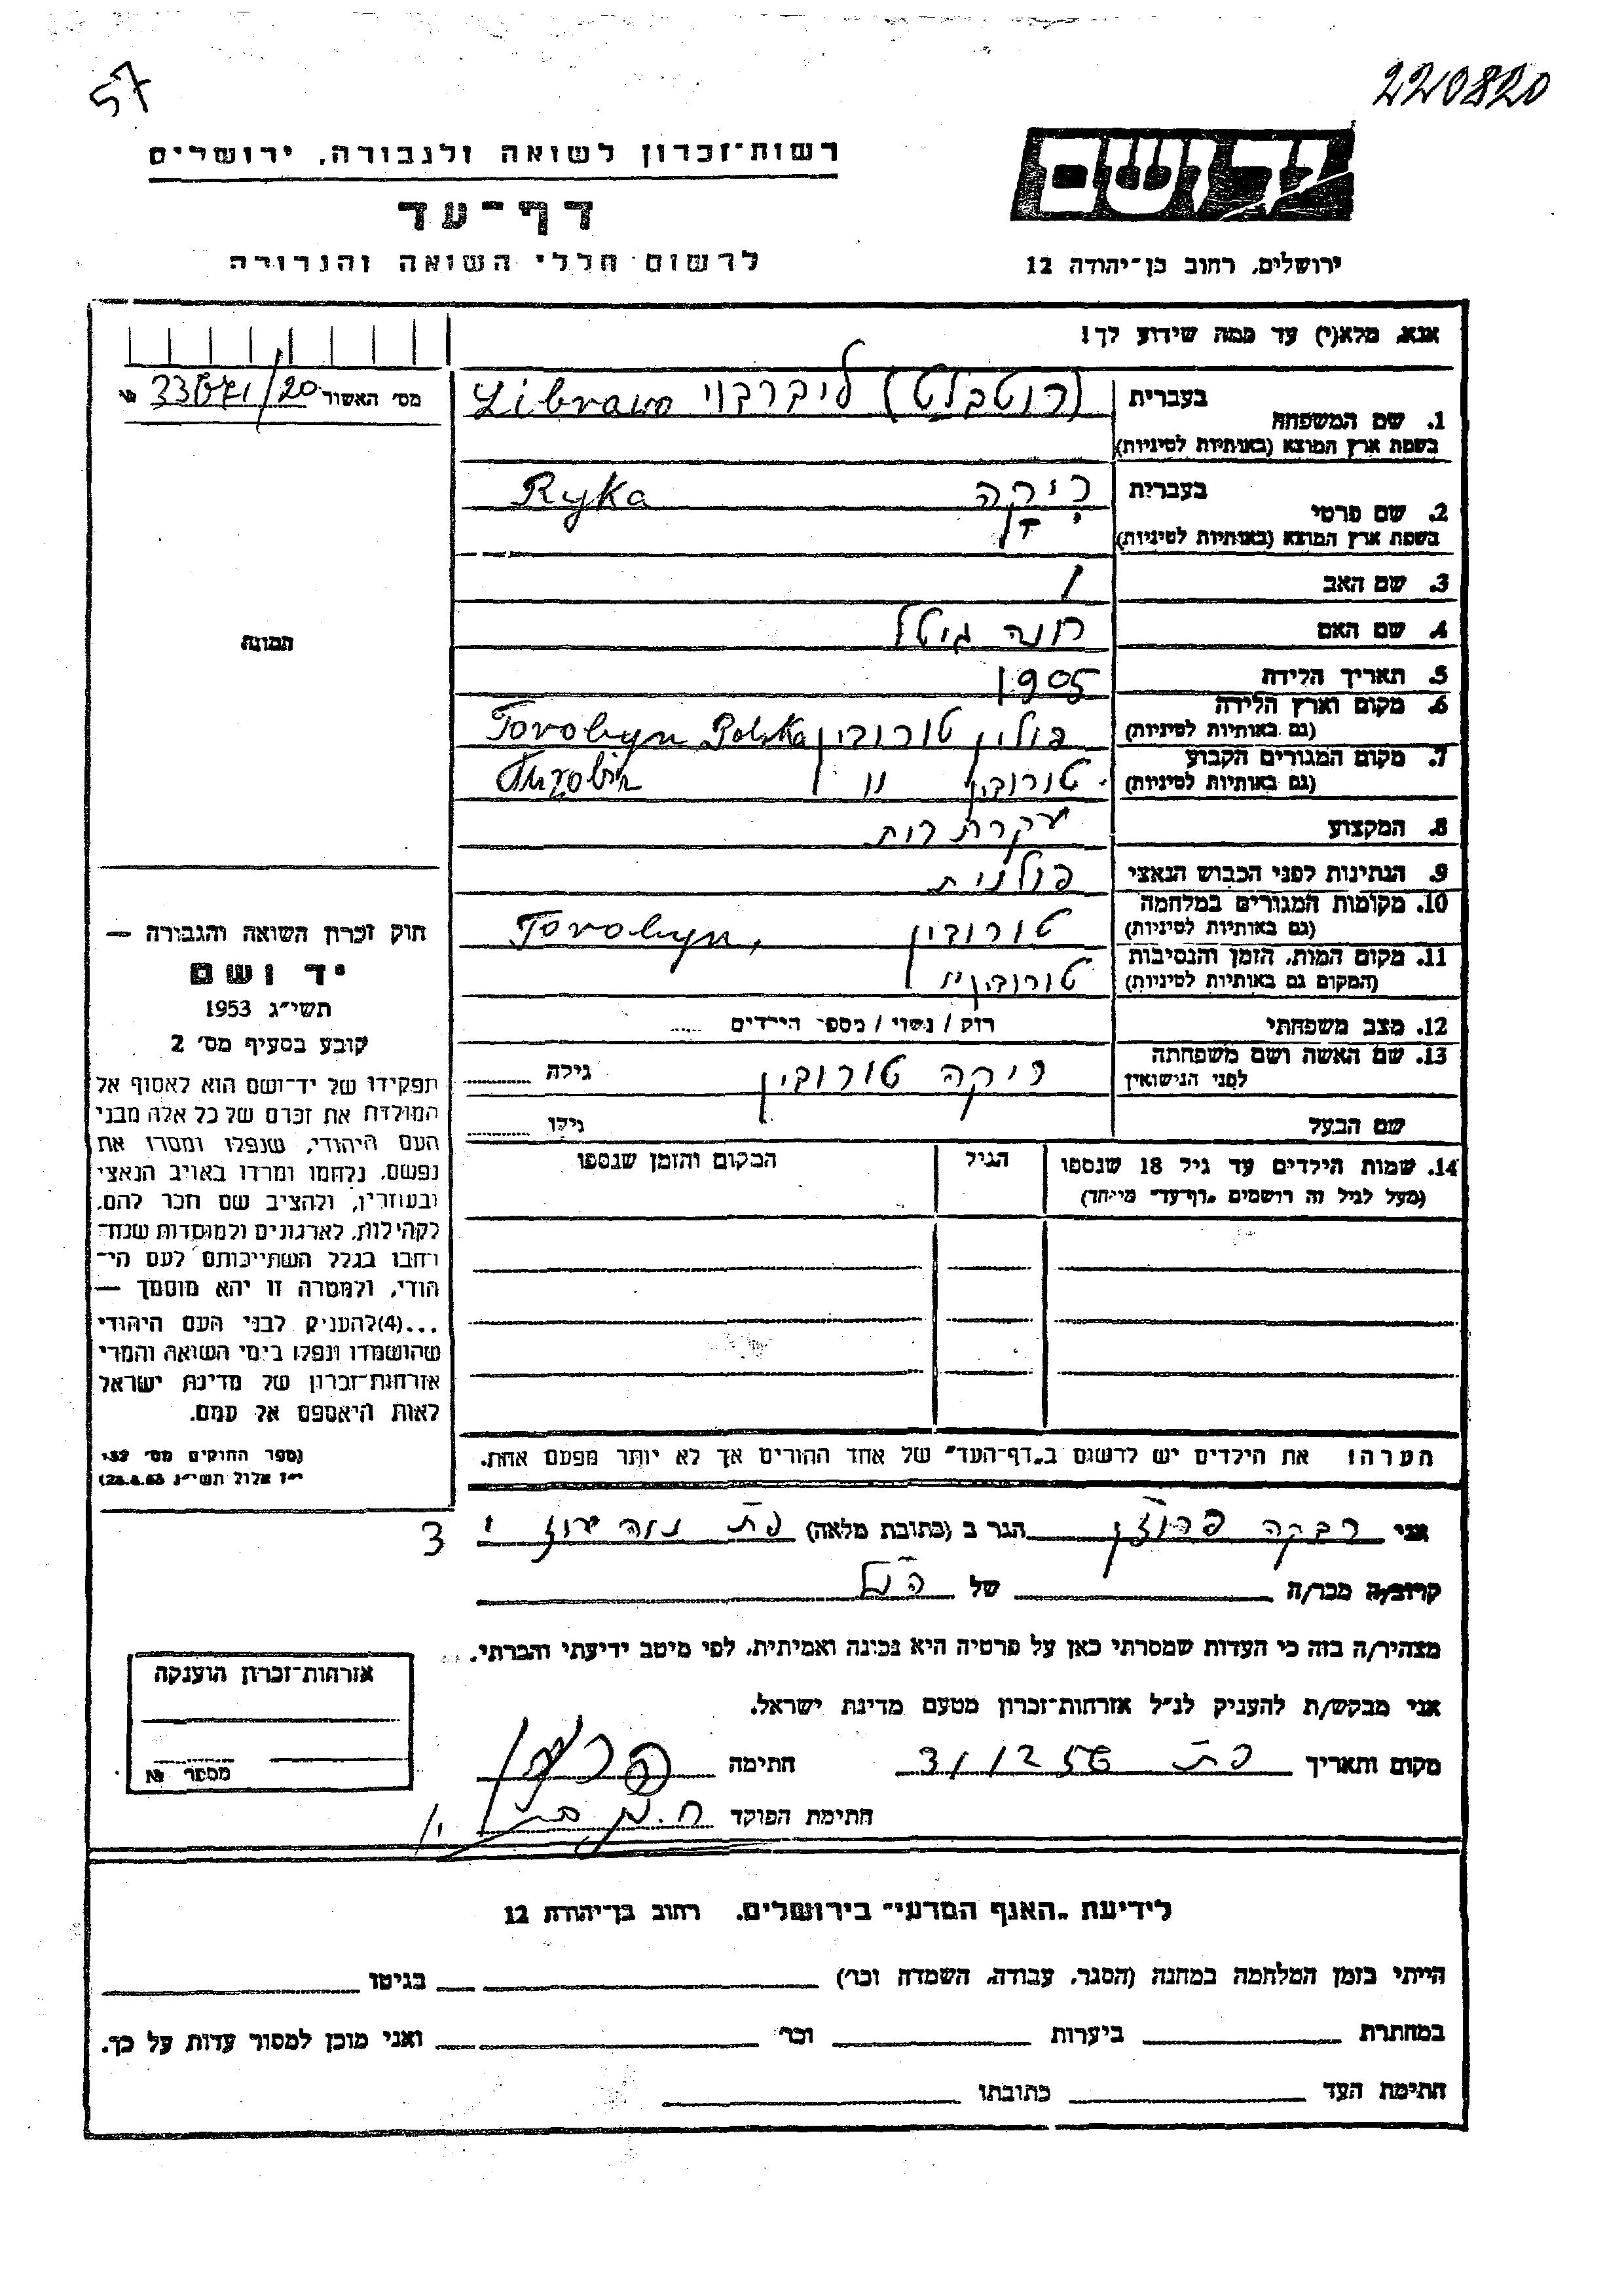 57
220820
רשות־זכרון לשואה ולגבורה, ירושלים
דף־עד
לרשום חללי השואה והגבורה
יד ושם
ירושלים, רחוב בן־יהודה 12
אנא, מלא(י) עד כמה שידוע לך!
מס' האשור
בעברית (רוטבלט) ליברבוי Librawo
1. שם המשפחה
בשפת ארץ המוצא (באותיות לטיניות)
בעברית ריקה Ryka
2. שם פרטי
בשפת ארץ המוצא (באותיות לטיניות)
3. שם האב
4. שם האם חנה גיטל
5. תאריך הלידה 1905
6. מקום וארץ הלידה פולין טורובין Torobyn Polska
(גם באותיות לטיניות)
7. מקום המגורים הקבוע טורובין " Turobin
(גם באותיות לטיניות)
8. המקצוע עקרת בית
9. הנתינות לפני הכבוש הנאצי פולנית
10. מקומות המגורים במלחמה טורובין Torobyn,
(גם באותיות לטיניות)
11. מקום המות, הזמן והנסיבות טורובין
(המקום גם באותיות לטיניות)
12. מצב משפחתי רוק / נשוי / מספר הילדים .....
13. שם האשה ושם משפחתה ריקה טורובין גילה
לפני הנישואין
שם הבעל גילו
14. שמות הילדים עד גיל 18 שנספו הגיל המקום והזמן שנספו
(מעל לגיל זה רושמים „דף־עד" מיוחד)
הערה! את הילדים יש לרשום ב„דף־העד" של אחד ההורים אך לא יותר מפעם אחת.
תמונה
חוק זכרון השואה והגבורה —
יד ושם
תשי״ג 1953
קובע בסעיף מס' 2
תפקידו של יד־ושם הוא לאסוף אל
המולדת את זכרם של כל אלה מבני
העם היהודי, שנפלו ומסרו את
נפשם, נלחמו ומרדו באויב הנאצי
ובעוזריו, ולהציב שם וזכר להם,
לקהילות, לארגונים ולמוסדות שנח־
רבו בגלל השתייכותם לעם הי־
הודי, ולמטרה זו יהא מוסמך —
...(4)להעניק לבני העם היהודי
שהושמדו ונפלו בימי השואה והמרי
אזרחות־זכרון של מדינת ישראל
לאות היאספם אל עמם.
(ספר החוקים מס' 132
י״ז אלול תשי״ג 28.8.53)
אני רבקה הגר ב (כתובת מלאה)
קרוב/ה מכר/ה של הנ״ל
מצהיר/ה בזה כי העדות שמסרתי כאן על פרטיה היא נכונה ואמיתית, לפי מיטב ידיעתי והכרתי.
אני מבקש/ת להעניק לנ״ל אזרחות־זכרון מטעם מדינת ישראל.
מקום ותאריך חתימה
חתימת הפוקד
אזרחות־זכרון הוענקה
מספר №
לידיעת „האגף המדעי" בירושלים, רחוב בן־יהודה 12
הייתי בזמן המלחמה במחנה (הסגר, עבודה, השמדה וכר') בגיטו
במחתרת ביערות וכר' ואני מוכן למסור עדות על כך.
חתימת העד כתובתו